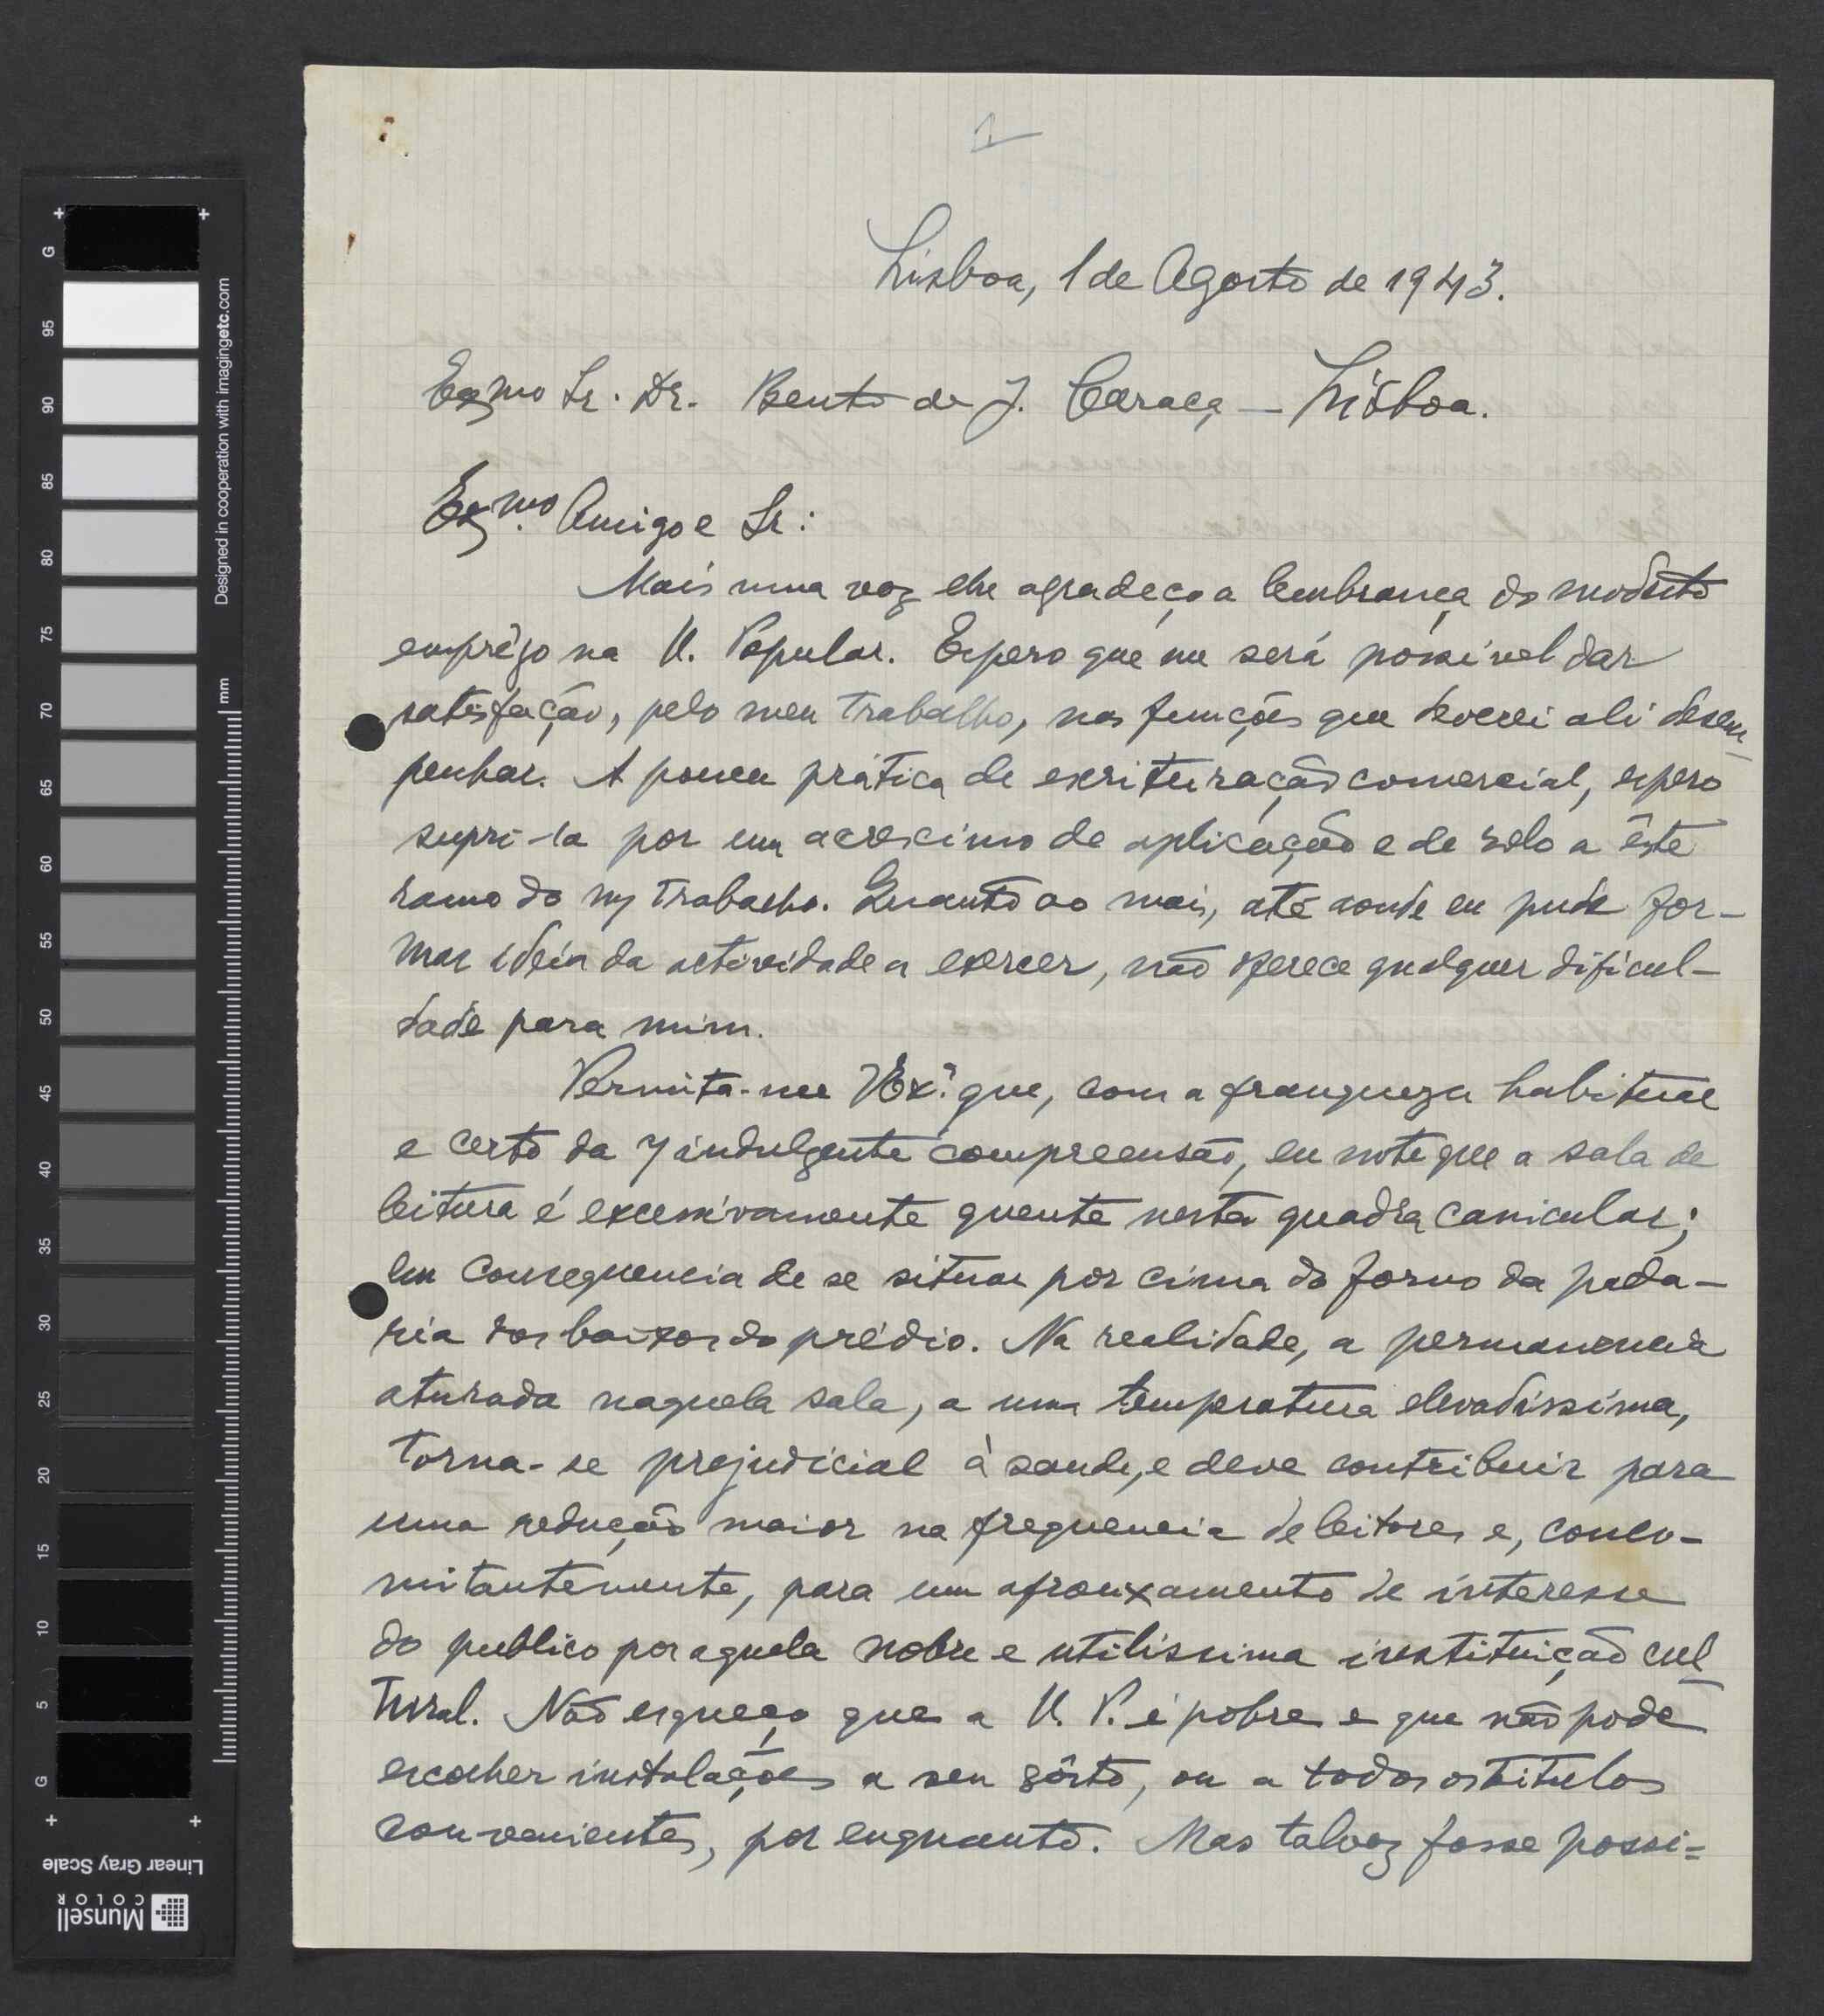 1
Lisboa, 1 de Agosto de 1943.
Exmo Sr. Dr. Bento de J. Caraça – Lisboa.
Exmo. Amigo e Sr:
Mais uma vez lhe agradeço a lembrança do modesto
emprêgo na U. Popular. Espero que me será possivel dar
satisfação, pelo meu trabalho, nas funções que deverei ali desem-
penhar. A pouca prática de escrituração comercial, espero
supri-la por um acrescimo de aplicação e de zelo a êste
ramo do trabalho. Quanto ao mais, até aonde eu pude for-
mar ideia da actividade a exercer, não oferece qualquer dificul-
dade para mim.
Permita-me V Ex.ª que, com a franqueza habitual
e certo da indulgente compreensão, eu note que a sala de
leitura é excessivamente quente nesta quadra canicular;
em consequencia de se situar por cima do forno da pada-
ria dos baixos do prédio. Na realidade, a permanencia
aturada naquela sala, a uma temperatura elevadissima,
torna-se prejudicial à saude, e deve contribuir para
uma redução maior na frequencia de leitores e, conco-
mitantemente, para um afrouxamento de interesse
do publico por aquela nobre e utilissima instituição cul-
tural. Não esqueço que a U. P. é pobre e que não pode
escolher instalações a seu gôsto, ou a todos os titulos
convenientes, por enquanto. Mas talvez fosse possi=
G
95
90
85
80
75
70
65
60
55
50
45
40
35
30
25
20
15
10
5
G
mm
Designed in cooperation with imagingetc.com
Linear Gray Scale
Munsell
COLOR